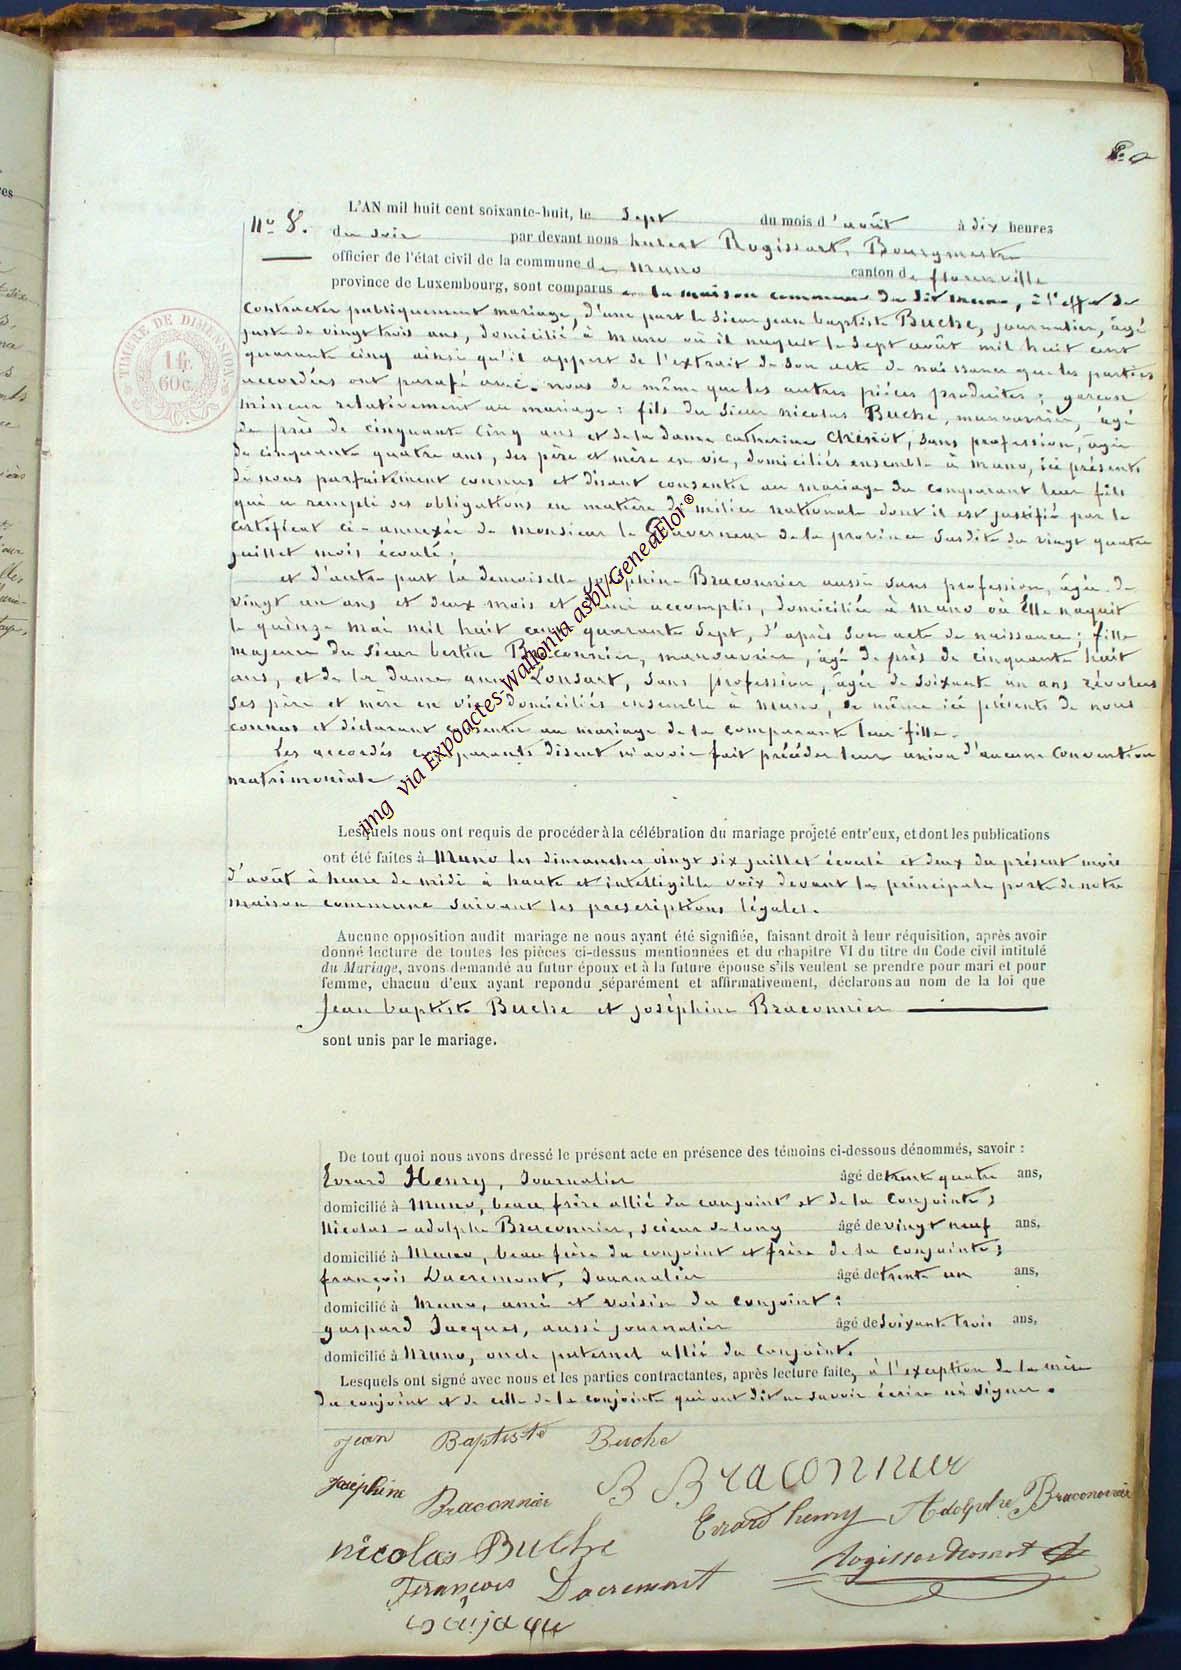 N° 8.
L'AN mil huit cent soixante-huit, le sept du mois d'août à dix heures
du soir par devant nous hubert Rogissart, Bourgmestre
officier de l'état civil de la commune de muno canton de florenville
province de Luxembourg, sont comparus en la maison commune du dit muno, à l'effet de
contracter publiquement mariage, d'une part le sieur jean baptiste Buche, journalier, âgé
juste de vingt trois ans, domicilié à muno où il naquit le sept août mil huit cent
quarante cinq ainsi qu'il appert de l'extrait de son acte de naissance que les parties
accordées ont parafé avec nous de même que les autres pièces produites; garçon
mineur relativement au mariage: fils du sieur nicolas Buche, manouvrier, âgé
de près de cinquante cinq ans et de la dame catherine, sans profession, âgée
de cinquante quatre ans, ses père et mère en vie, domiciliés ensemble à muno, ici présents
de nous parfaitement connus et disant consentir au mariage du comparant leur fils
qui a rempli ses obligations en matière de milice nationale dont il est justifié par le
certificat ci-annexée de monsieur le Gouverneur de la province susdite du vingt quatre
juillet mois écoulé;
et d'autre part la demoiselle joséphine Braconnier aussi sans profession, âgée de
vingt un ans et deux mois et demi accomplis, domiciliée à muno où Elle naquit
le quinze mai mil huit cent quarante sept, d'après son acte de naissance; fille
majeure du sieur bertin Braconnier, manouvrier, âgé de près de cinquante huit
ans, et de la dame anne Lonsart, sans profession, âgée de soixante un ans révolus
ses père et mère en vie domiciliés ensemble à muno, de même ici présents de nous
connus et déclarant consentir au mariage de la comparante leur fille.
Les accordés comparants disent n'avoir fait précéder leur union d'aucune convention
matrimoniale
Lesquels nous ont requis de procéder à la célébration du mariage projeté entr'eux, et dont les publications
ont été faites à Muno les dimanches vingt six juillet écoulé et deux du présent mois
d'août à heure de midi à haute et intelligible voix devant la principale porte de notre
maison commune suivant les prescriptions légales.
Aucune opposition audit mariage ne nous ayant été signifiée, faisant droit à leur réquisition, après avoir
donné lecture de toutes les pièces ci-dessus mentionnées et du chapitre VI du titre du Code civil intitulé
du Mariage, avons demandé au futur époux et à la future épouse s'ils veulent se prendre pour mari et pour
femme, chacun d'eux ayant repondu séparément et affirmativement, déclarons au nom de la loi que
Jean baptiste Buche et joséphine Braconnier
sont unis par le mariage.
De tout quoi nous avons dressé le présent acte en présence des témoins ci-dessous dénommés, savoir :
Evrard Henry, Journalier âgé de trente quatre ans,
domicilié à Muno, beau frère allié du conjoint et de la conjointe;
Nicolas-adolphe Braconnier, scieur de long âgé de vingt neuf ans,
domicilié à Muno, beau frère du conjoint et frère de la conjointe;
françois Dacremont, Journalier âgé de trente un ans,
domicilié à Muno, ami et voisin du conjoint;
gaspard Jacques, aussi journalier âgé de soixante trois ans,
domicilié à Muno, oncle paternel allié du conjoint.
Lesquels ont signé avec nous et les parties contractantes, après lecture faite, à l'exception de la mère
du conjoint et de celle de la conjointe qui ont dit ne savoir écrire ni signer.
jean Baptiste Buche
joséphine Braconnier B Braconnier
Evrard henry Adolphe Braconnier
nicolas Buche
François Dacremont
TIMBRE DE DIMENSION
1 fr.
60 c.
img via Expoactes-Wallonia asbl/GeneaFlor®